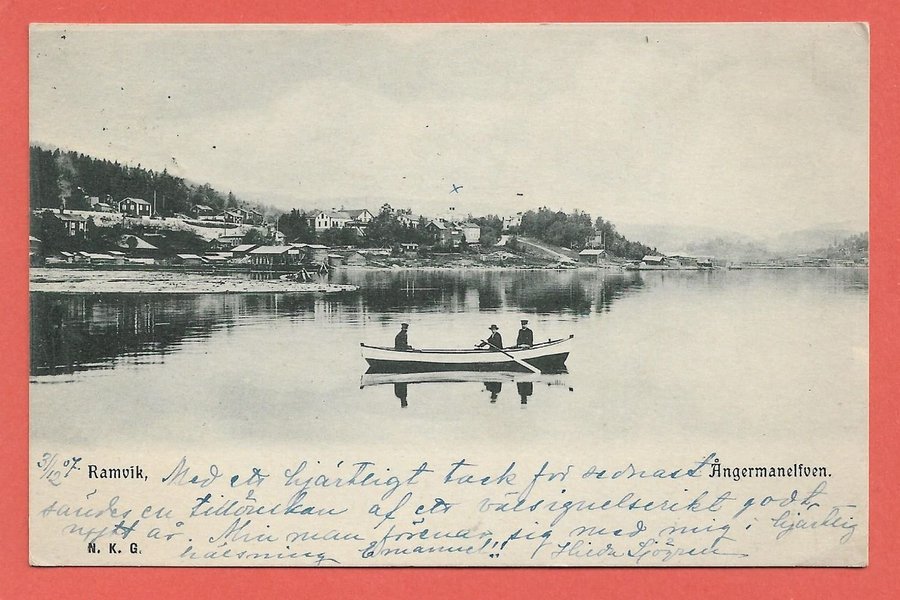 31/12 07. Ramvik, Med ett hjärtligt tack för sednast Ångermanelfven.
sändes en tillönskan af ett välsignelserikt godt
nytt år. Min man förenar sig med mig i hjärtlig
N. K. G. hälsning Emanuel!! Hilda Sjögren